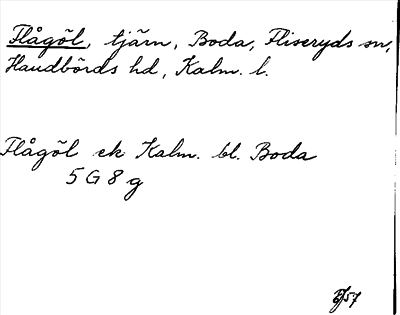 Flågöl, tjärn, Boda, Fliseryds sn,
Handbörds hd, Kalm. l.
Flågöl ek Kalm. bl. Boda
5 G 8 g